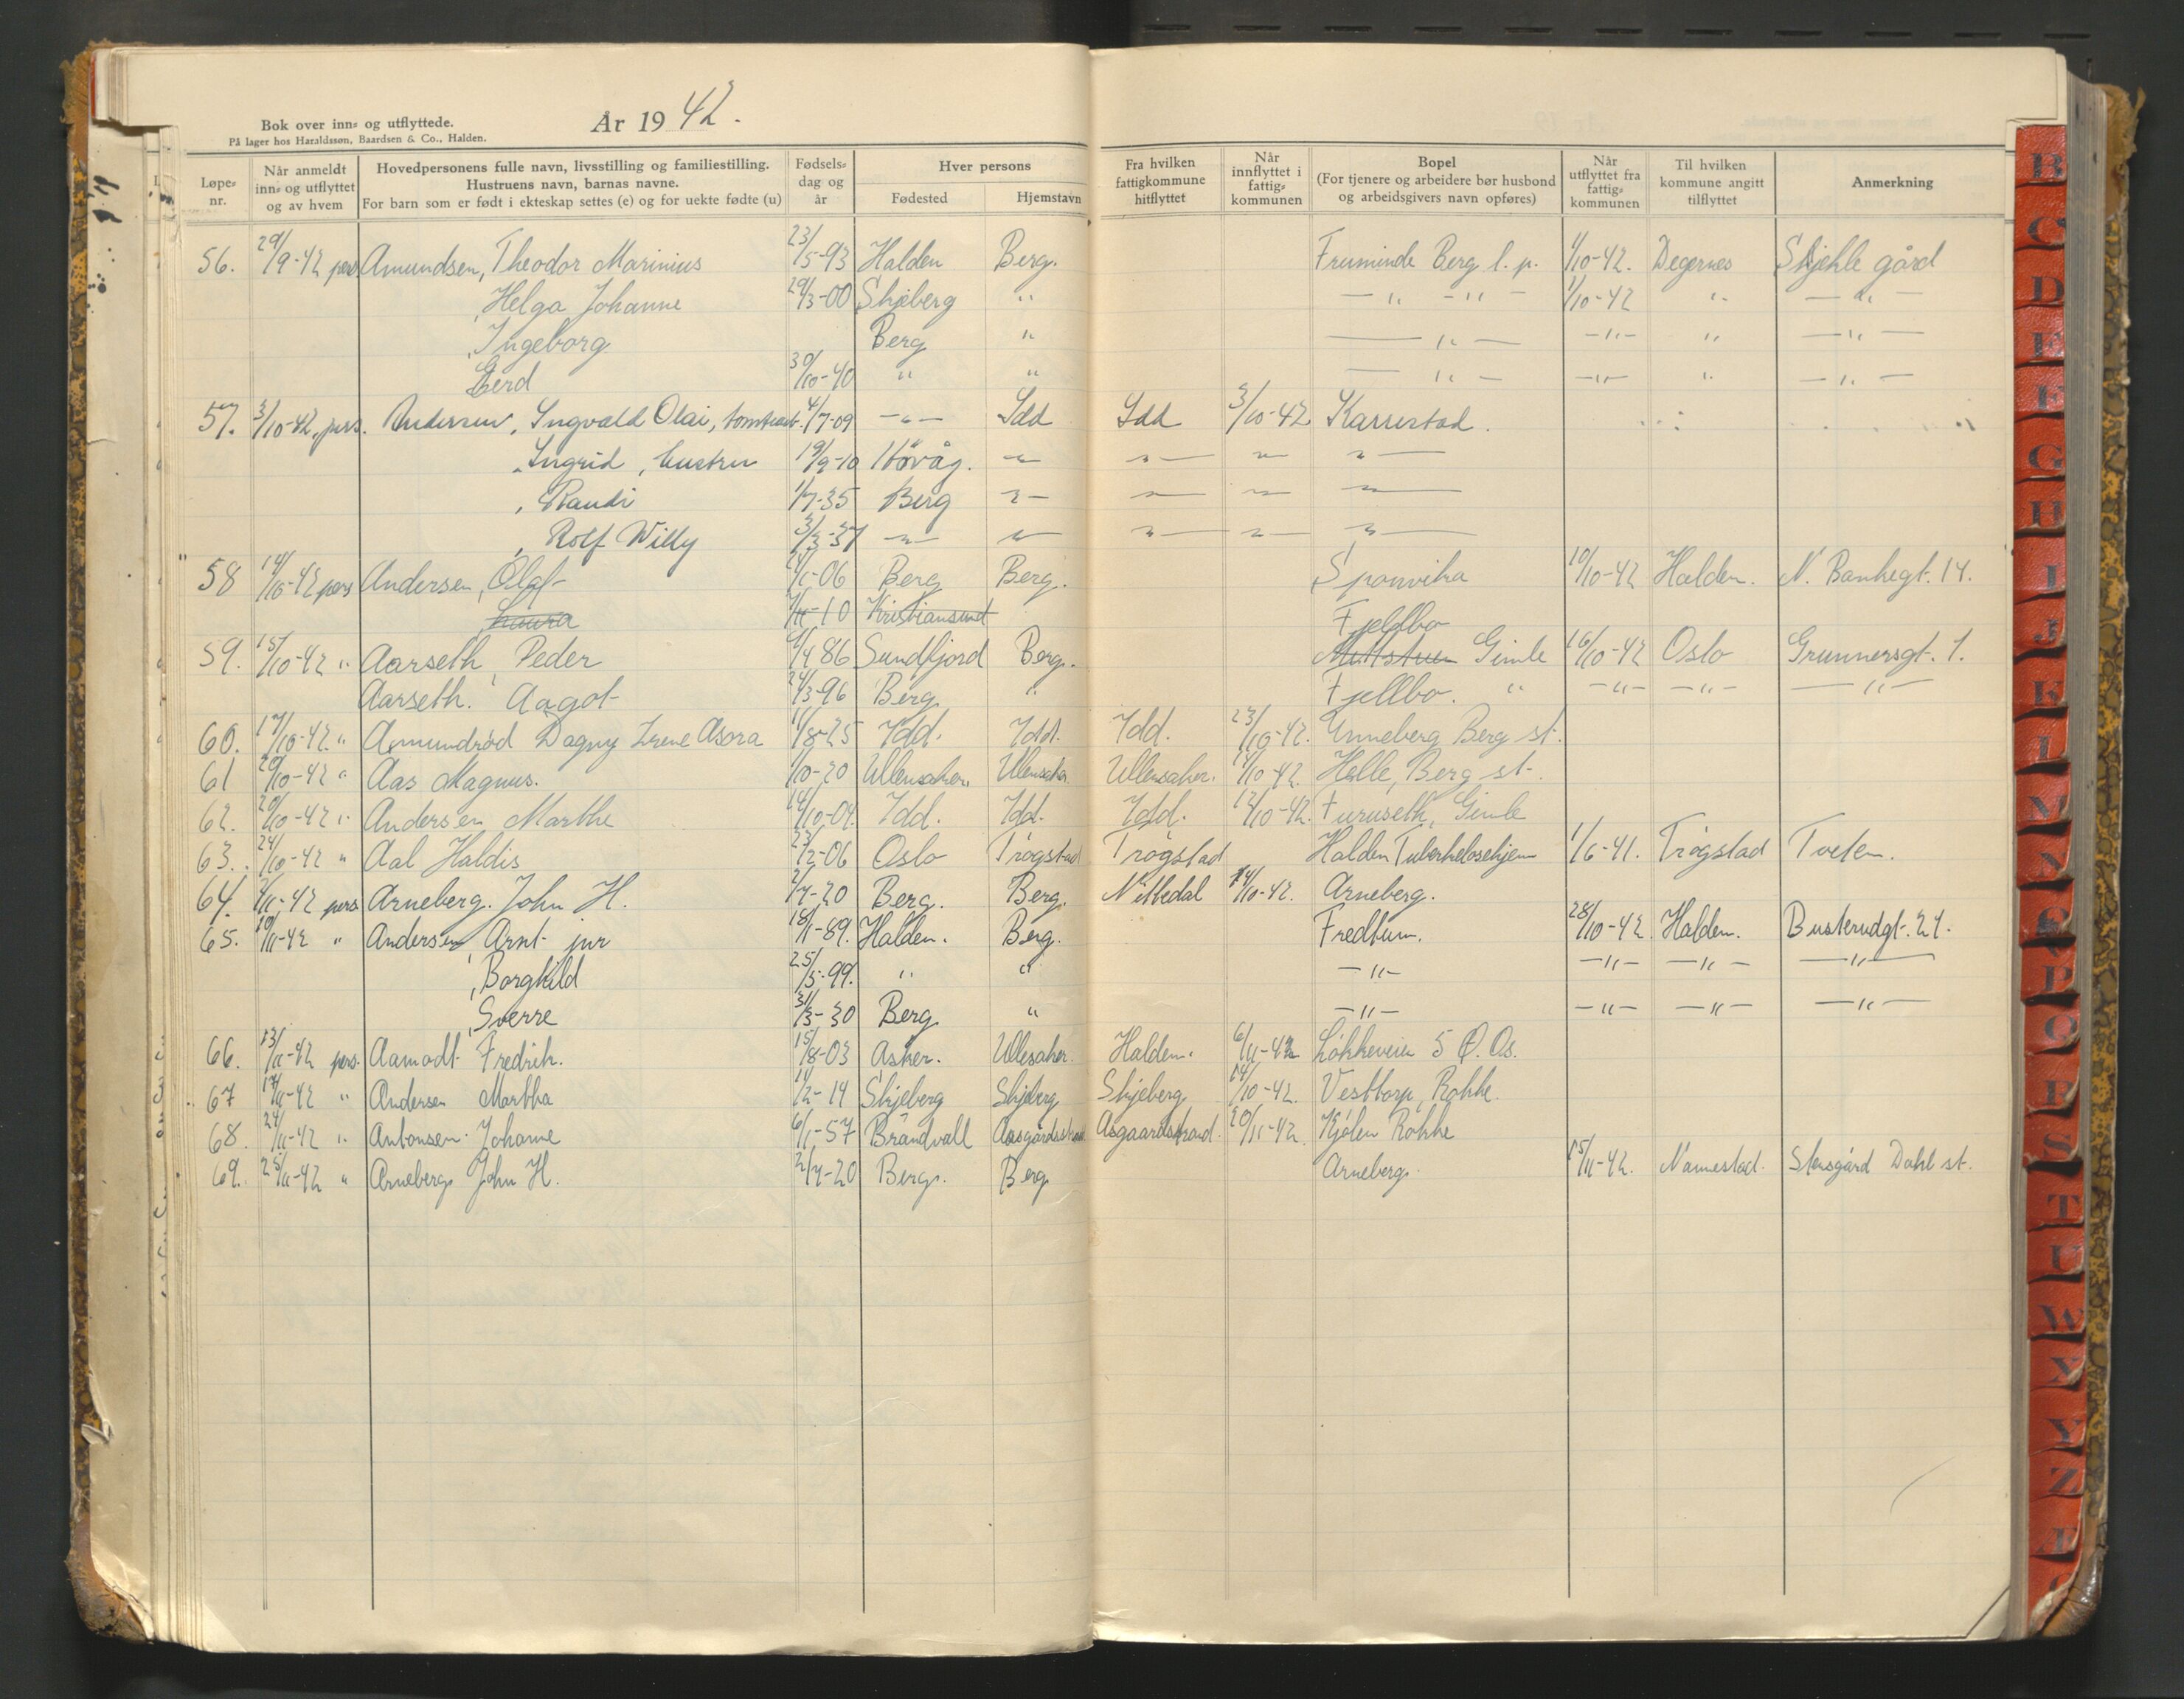 Bok over inn- og utflyttede.
På lager hos Haraldssøn, Baardsen & Co., Halden.
År 1942.
Løpe-nr. Når anmeldt inn- og utflyttet og av hvem Hovedpersonens fulle navn, livsstilling og familiestilling. Hustruens navn, barnas navne. For barn som er født i ekteskap settes (e) og for uekte fødte (u) Fødsels-dag og år Hver persons Fødested Hjemstavn Fra hvilken fattigkommune hitflyttet Når innflyttet i fattig-kommunen Bopel (For tjenere og arbeidere bør husbond og arbeidsgivers navn opføres) Når utflyttet fra fattig-kommunen Til hvilken kommune angitt tilflyttet Anmerkning
56. 29/9-42 pers Amundsen, Theodor Marinius 23/5-93 Halden Berg. Berg l. p. 1/10-42. Degernes Skjehle gård
, Helga Johanne 29/3-00 Skjeberg " -"-"- 1/10-42 " -"-
, Ingeborg Berg " -"- -"- " -"-
Gerd 30/10-40 " " -"- -"- " -"-
57. 3/10-42, pers. Andersen, Ingvald Olai, 4/7-09 -"- Idd Idd 3/10-42 Karrestad.
, Ingrid, hustru 19/9-10 Høvåg. -"- -"- -"- -"-
, Randi 1/7-35 Berg -"- -"- -"- -"-
, Rolf Willy 3/3-37 -"- -"- -"- -"- -"-
58 14/10-42 pers Andersen, Olaf 24/1-06 Berg Berg. Sponvika 10/10-42 Halden. N. Bankegt. 14.
Laura 10 Kristiansund Fjeldbo
59. 15/10-42 " Aarseth, Peder 86 Sundfjord Berg. Gimle 16/10-42 Oslo Grunnersgt. 1.
Aarseth. Aagot 24/3-96 Berg " Fjellbo. " -"- -"- -"-
60. 17/10-42. " Amundrød Dagny Irene Asora 11/8-25 Idd. Idd. Idd. 23/10-42. Unneberg Berg st.
61 20/10-42 " Aas Magnus. 1/10-20 Ullensaker Ullensaker Ullensaker. 10-42. Helle, Berg st.
62. 20/10-42 " Andersen Marthe 14/10-04. Idd. Idd. Idd. 12/10-42. Furuseth, Gimle
63. 24/10-42 " Aal Haldis 23/2-06 Oslo Trøgstad Trøgstad Halden Tuberkelosehjem 1/6-41. Trøgstad Tveten.
64. 2/11-42 pers Arneberg. John H. 2/7-20 Berg. Berg. Nittedal 14/10-42. Arneberg.
65. 10/11-42 " Andersen, Arnt jnr 18/1-89. Halden. Berg. Fredtum. 28/10-42 Halden. Busterudgt. 21.
, Borghild 25/5-99. " " -"- -"- -"- -"-
, Sverre 31/3-30 Berg " -"- -"- -"- -"-
66. 13/11-42 pers. Aamodt Fredrik. 15/8-03 Asker. Ullesaker. Halden. 6/11-42 Løkkeveien 5 Ø. Os.
67 17/11-42 " Andersen Martha 14/2-14 Skjeberg Skjeberg Skjeberg 14/10-42. Vesttorp, Rokke.
68. 24/11-42 " Antonsen Johanne 6/1-57 Brandvall Aasgårdsstrand Asgaardstrand. 20/11-42. Kjølen Rokke
69. 25/11-42 " Arneberg John H. 2/7-20 Berg. Berg Arneberg. 15/11-42. Nannestad. Stensgård Dahl st.
B
C
D
E
F
G
H
I
J
K
L
M
N
O
P
Q
R
S
T
U
W
X
Y
Z
Æ